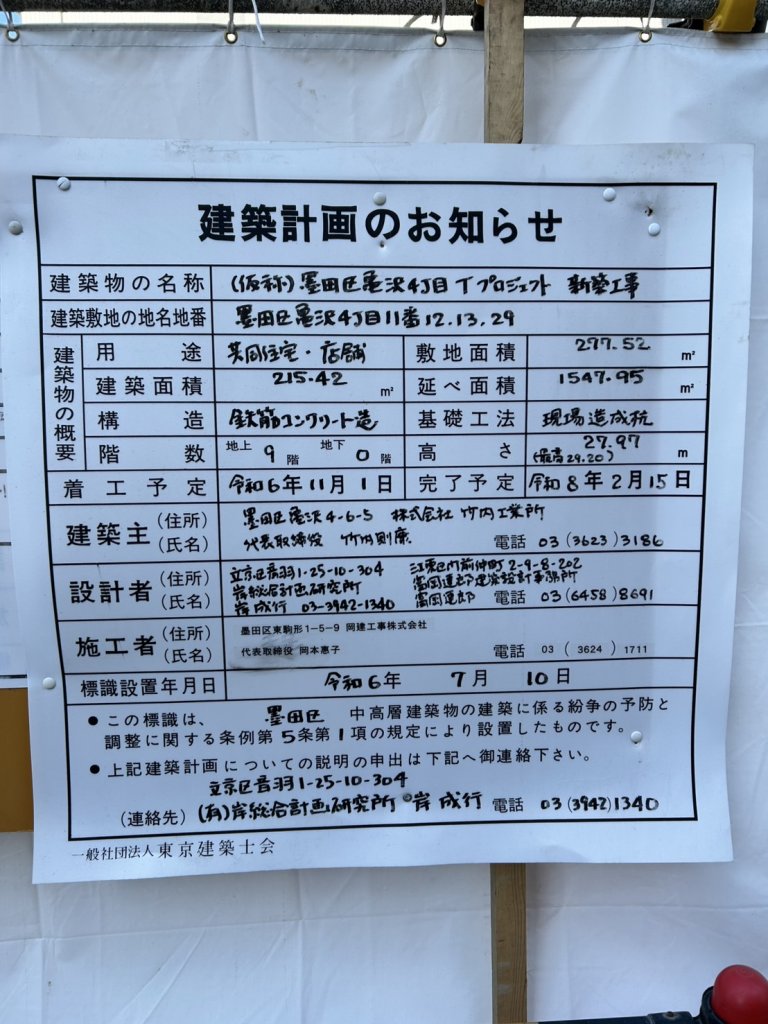 建築計画のお知らせ
建築物の名称 (仮称)墨田区亀沢4丁目Tプロジェクト 新築工事
建築敷地の地名地番 墨田区亀沢4丁目11番12.13.29
建築物の概要
用途 共同住宅・店舗 敷地面積 277.52 m²
建築面積 215.42 m² 延べ面積 1547.95 m²
構造 鉄筋コンクリート造 基礎工法 現場造成杭
階数 地上 9 階 地下 0 階 高さ 27.97 (最高29.20) m
着工予定 令和6年11月1日 完了予定 令和8年2月15日
建築主 (住所) 墨田区亀沢4-6-5 株式会社 竹内工業所
(氏名) 代表取締役 竹内則 電話 03(3623)3186
設計者 (住所) 文京区音羽1-25-10-304 江東区門前仲町2-9-8-202
岸総合計画研究所 建築設計事務所
(氏名) 岸 成行 03-3942-1340 電話 03(6458)8691
施工者 (住所) 墨田区東駒形1-5-9 岡建工事株式会社
(氏名) 代表取締役 岡本惠子 電話 03 ( 3624 ) 1711
標識設置年月日 令和6年 7月 10日
●この標識は、 墨田区 中高層建築物の建築に係る紛争の予防と
調整に関する条例第5条第1項の規定により設置したものです。
●上記建築計画についての説明の申出は下記へ御連絡下さい。
文京区音羽1-25-10-304
(連絡先) (有)岸総合計画研究所 岸 成行 電話 03(3942)1340
一般社団法人東京建築士会